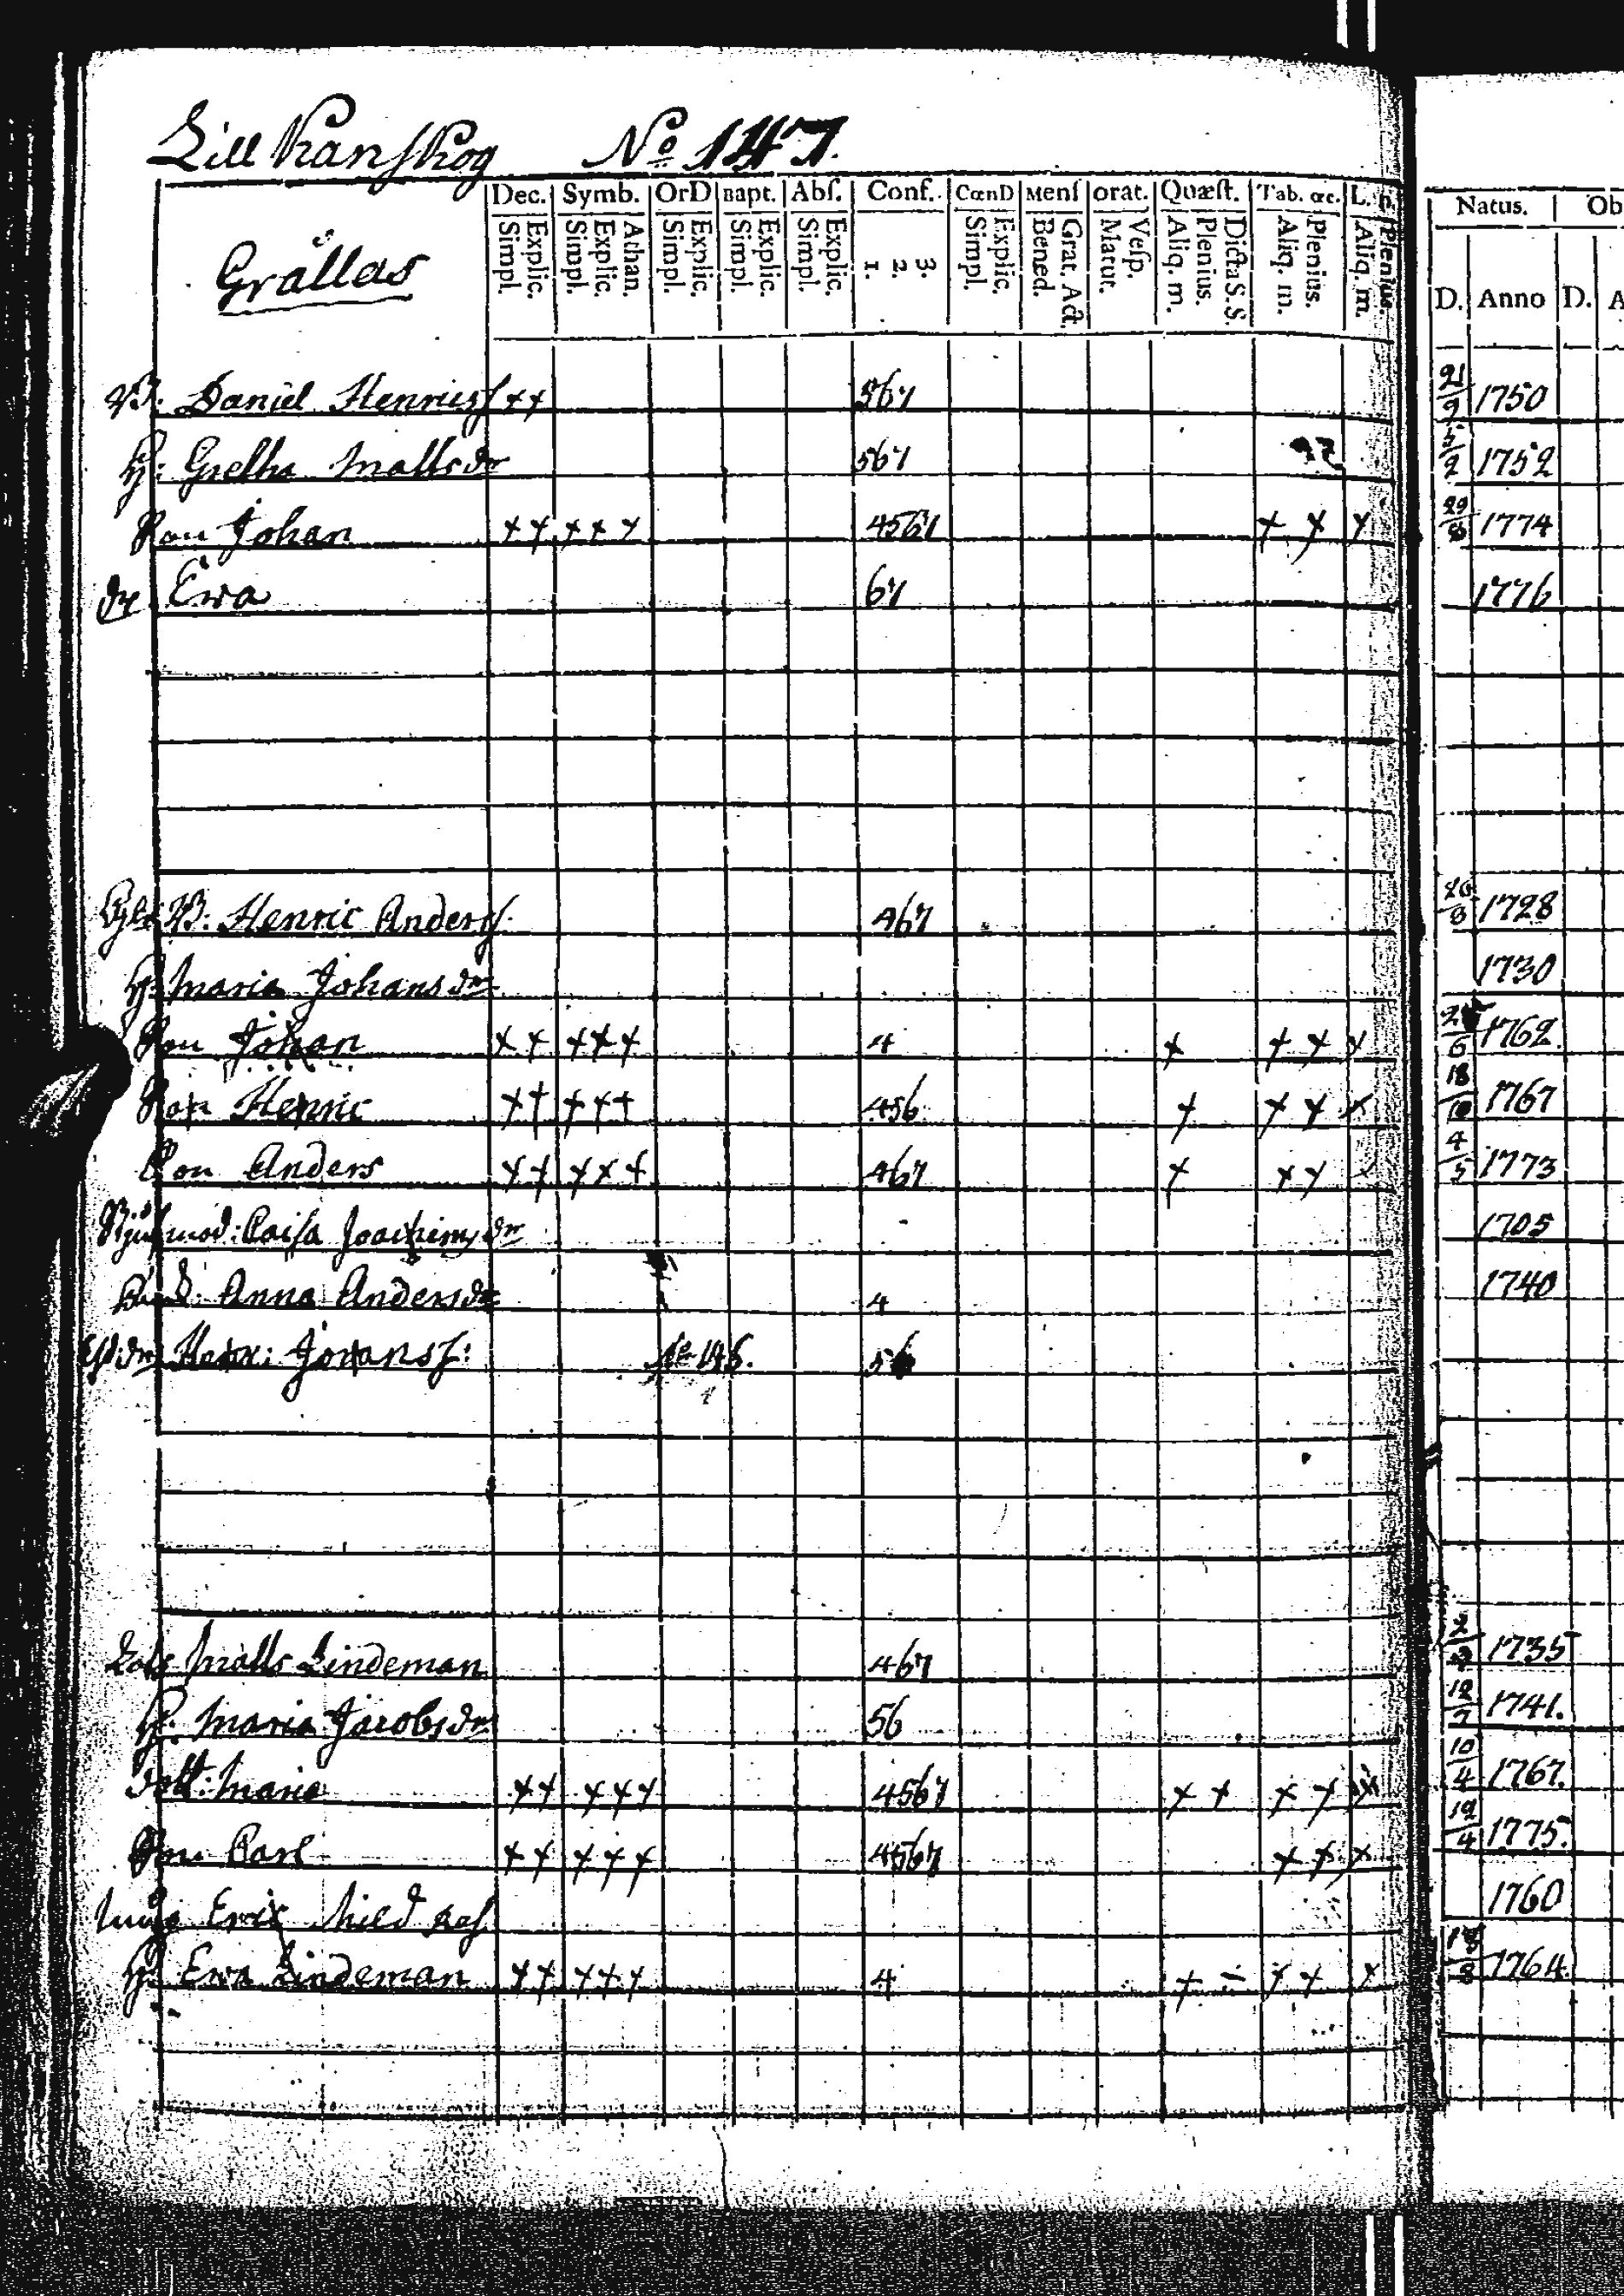 Lill Ranskog No 147.
Grällas
Dec. Symb. OrD Bapt. Abſ. Conf. CœnD Menſ orat. Quæſt. Tab. œc. L. p. Natus. Ob
Simpl. Explic. Simpl. Explic. Athan. Simpl. Explic. Simpl. Explic. Simpl. Explic. 1. 2. 3. Simpl. Explic. Bened. Grat. Act. Matut. Veſp. Aliq. m. Plenius. Dicta S.S. Aliq. m. Plenius. Aliq. m. Plenius. D. Anno D. A
B: Daniel Henricsſ ++ 567 21/9 1750
H: Gretha Mattsdr 567 5/2 1752
Son Johan ++ +++ 4567 + + + 29/8 1774
dr Ewa 67 1776
B: Henric Andersſ. 467 1728
H: Maria Johansdr 1730
Son Johan ++ +++ 4 + + + + 1762
Son Henric ++ +++ 456 + + + + 18/10 1767
Son Anders ++ +++ 467 + ++ 4/5 1773
Caisa Joachimsdr 1705
Anna Andersdr 4 1740
Henr: Johansſ: No 146. 56
Matts Lindeman 467 1735
H: Maria Jacobsdr 56 12/7 1741.
dott: Maria ++ +++ 4567 + + + + + 10/4 1767.
Son Carl ++ +++ 4567 + + + 12/4 1775.
Eric 1760
H: Ewa Lindeman ++ +++ 4 + ÷ + + + 1764.